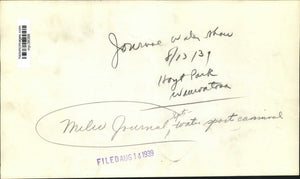 Journal Water Show
8/13/39
Hoyt Park
Wauwatosa
Milw Journal, water sport carnival
FILED AUG 14 1939